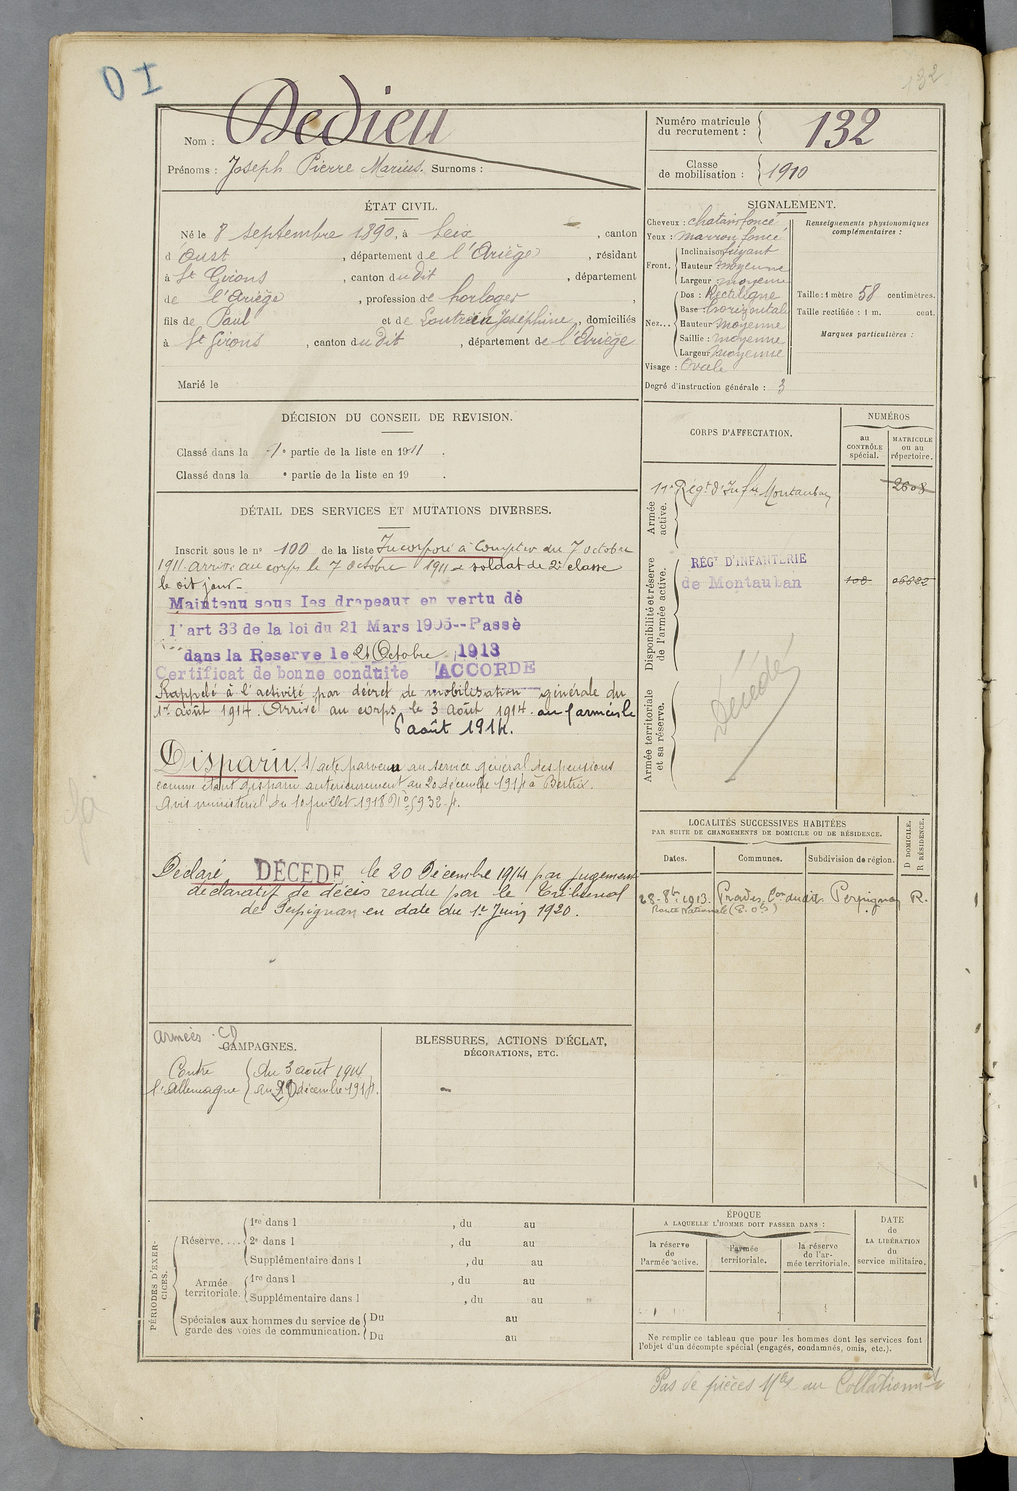 OI
132
Nom : Dedieu
Prénoms : Joseph Pierre Marius. Surnoms :
Numéro matricule du recrutement : 132
Classe de mobilisation : 1910
ÉTAT CIVIL.
Né le 8 septembre 1890, à Seix , canton
d'Oust , département de l'Ariège , résidant
à St Girons , canton dudit , département
de l'Ariège , profession de horloger ,
fils de Paul et de Joséphine , domiciliés
à St Girons , canton dudit , département de l'Ariège
Marié le
SIGNALEMENT.
Cheveux : chatain foncé
Yeux : marron foncé
Front. Inclinaison fuyant
Hauteur moyenne
Largeur : moyenne
Nez... Dos : Rectiligne
Base : horizontale
Hauteur moyenne
Saillie : moyenne
Largeur moyenne
Visage : Ovale
Degré d'instruction générale : 3
Renseignements physionomiques complémentaires :
Taille : 1 mètre 58 centimètres.
Taille rectifiée : 1 m. cent.
Marques particulières :
DÉCISION DU CONSEIL DE REVISION.
Classé dans la 1e partie de la liste en 1911 .
Classé dans la e partie de la liste en 19 .
DÉTAIL DES SERVICES ET MUTATIONS DIVERSES.
Inscrit sous le no 100 de la liste Incorporé à compter du 7 octobre
1911. arrivé au corps le 7 octobre 1911 soldat de 2e classe
le dit jour.
Maintenu sous les drapeaux en vertu de
l'art 33 de la loi du 21 Mars 1905--Passé
dans la Reserve le 21 Octobre 1913
Certificat de bonne conduite ACCORDE
Rappelé à l'activité par décret de mobilisation générale du
1er août 1914. Arrivé au corps le 3 août 1914. aux armées le
6 août 1914.
Disparu. acte parvenu au service général des pensions
comme étant disparu antérieurement au 20 décembre 1914 à Bertrix.
Avis ministériel du 10 juillet 1918
Déclaré DÉCÉDÉ le 20 Décembre 1914 par jugement
déclaratif de décès rendu par le Tribunal
de Perpignan en date du 1er Juin 1920.
CORPS D'AFFECTATION.
NUMÉROS
au CONTRÔLE spécial.
MATRICULE ou au répertoire.
Armée active.
11e Régt d'Infie Montauban
2608
Disponibilité et réserve de l'armée active.
RÉGt D'INFANTERIE
de Montauban
100
Armée territoriale et sa réserve.
Décédé
LOCALITÉS SUCCESSIVES HABITÉES
PAR SUITE DE CHANGEMENTS DE DOMICILE OU DE RÉSIDENCE.
Dates.
Communes.
Subdivision de région.
D DOMICILE.
R RÉSIDENCE.
28-8bre 1913. Prades, Con dudit Perpignan R.
Route Nationale (P. Or)
Armées CD
CAMPAGNES.
Contre l'Allemagne
du 3 août 1914
au 20 décembre 1914.
BLESSURES, ACTIONS D'ÉCLAT,
DÉCORATIONS, ETC.
PÉRIODES D'EXERCICES.
Réserve....
1re dans l , du au
2e dans l , du au
Supplémentaire dans l , du au
Armée territoriale.
1re dans l , du au
Supplémentaire dans l , du au
Spéciales aux hommes du service de garde des voies de communication.
Du au
Du au
ÉPOQUE
A LAQUELLE L'HOMME DOIT PASSER DANS :
la réserve de l'armée active.
l'armée territoriale.
la réserve de l'armée territoriale.
DATE de LA LIBÉRATION du service militaire.
Ne remplir ce tableau que pour les hommes dont les services font
l'objet d'un décompte spécial (engagés, condamnés, omis, etc.).
Pas de pièces au